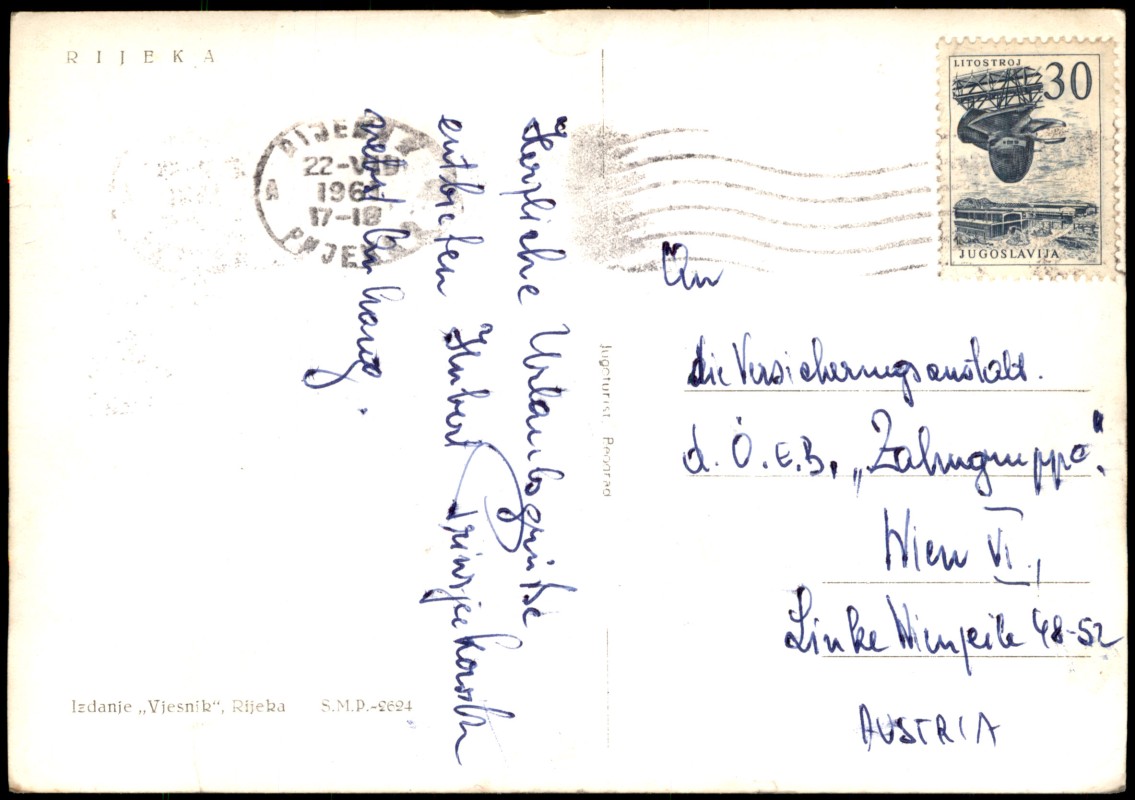 RIJEKA
RIJEKA
22-VIII
196
17-18
LITOSTROJ
30
JUGOSLAVIJA
Herzliche Urlaubsgrüße
entbieten Hubert
nebst Anhang.
Jugoturist Beograd
An
die Versicherungsanstalt.
d. Ö.E.B. „Zahngruppe“.
Wien VI.,
Linke Wienzeile 48-52
AUSTRIA
Izdanje „Vjesnik“, Rijeka S.M.P.-2624